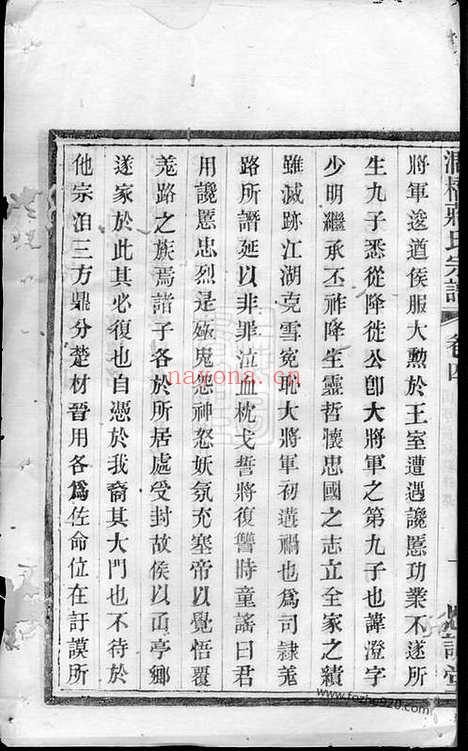 蔣氏宗譜
卷四
將軍逡遒侯服大勲於王室遭遇讒慝功業不遂所
生九子悉從降徙公卽大將軍之第九子也諱澄字
少明繼承丕祚降生靈哲懷忠國之志立全家之績
雖滅跡江湖克雪寃恥大將軍初遘禍也為司隷羗
路所譖延以非罪泣血枕戈誓將復讐時童謠曰君
用讒慝忠烈是殛鬼怨神怒妖氛充塞帝以覺悟覆
羗路之族焉諸子各於所居處受封故侯以㓜亭鄉
遂家於此其必復也自憑於我裔其大門也不待於
他宗洎三方鼎分楚材晉用各爲佐命位在訏謨所
nayona.cn
www.fozhu920.com